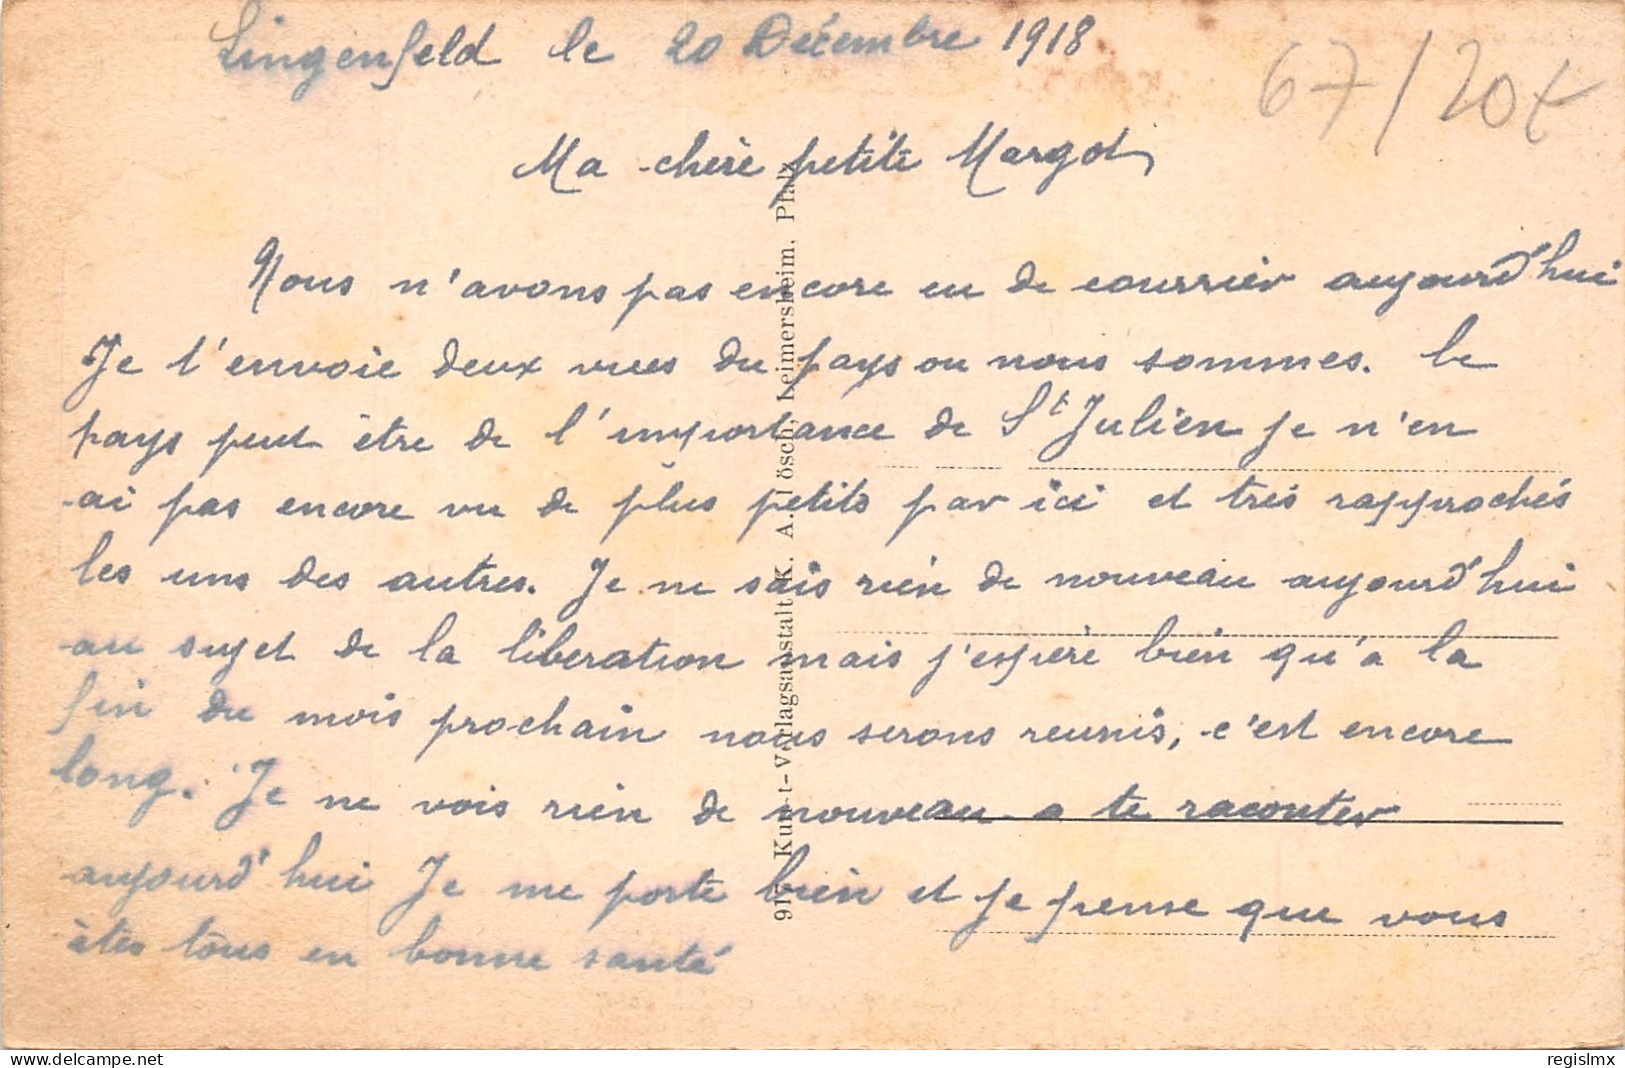 Lingenfeld le 20 Décembre 1918
67/20x
Ma chère petite Margot,
Nous n'avons pas encore eu de courrier aujourd'hui
Je t'envoie deux vues du pays ou nous sommes. le
pays peut être de l'importance de St Julien je n'en
ai pas encore vu de plus petits par ici et très rapprochés
les uns des autres. Je ne sais rien de nouveau aujourd'hui
au sujet de la liberation mais j'espère bien qu'a la
fin du mois prochain nous serons reunis, c'est encore
long. Je ne vois rien de nouveau a te raconter
aujourd'hui Je me porte bien et je pense que vous
êtes tous en bonne santé
Kunst-Verlagsanstalt K. A. Lösch, Leimersheim, Pfalz
delcampe.net
regislmx